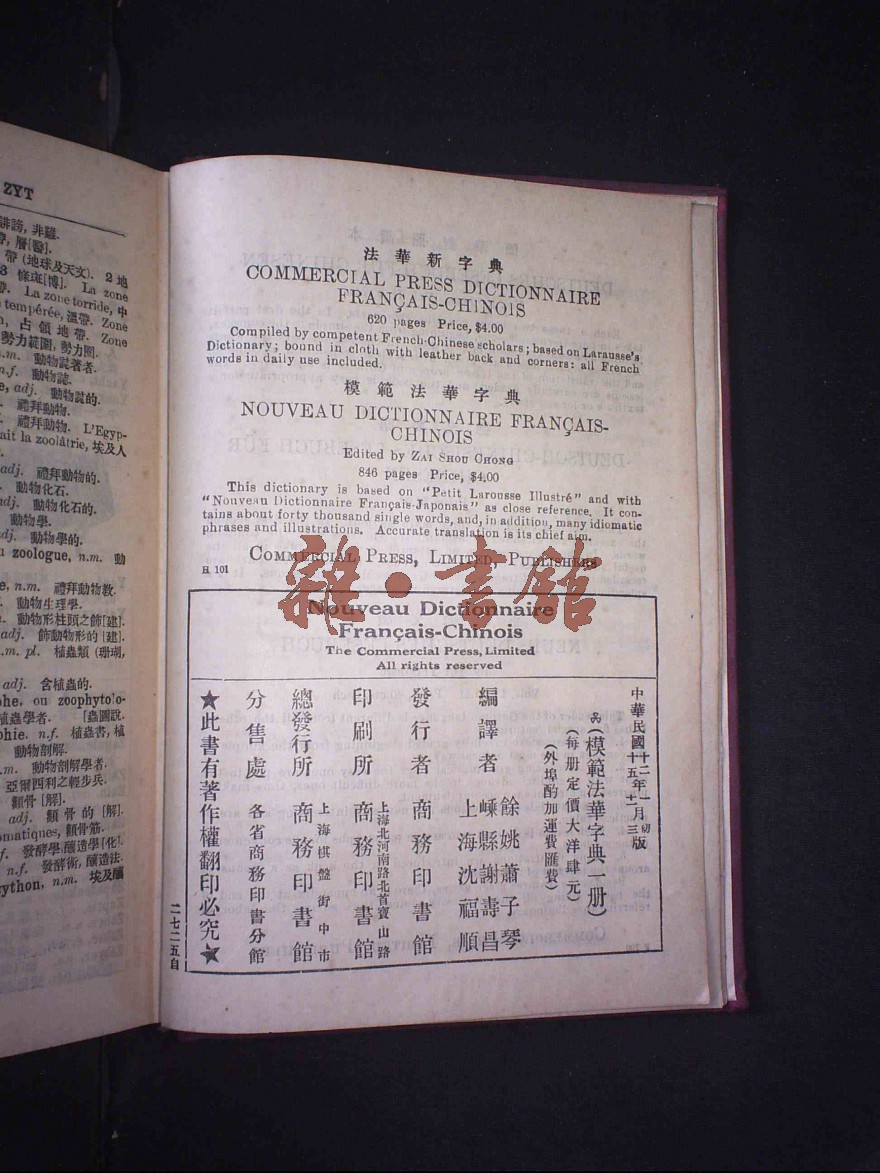 ZYT
誹謗, 非難.
帶, 層[醫].
帶 (地球及天文). 2 地
3 條斑[博]. La zone
帶. La zone torride, 中
tempérée, 溫帶. Zone
占領地帶. Zone
勢力範圍, 勢力圈.
n.m. 動物誌著者.
n.f. 動物誌.
adj. 動物誌的.
禮拜動物.
禮拜動物. L'Egyp-
ait la zoolâtrie, 埃及人
adj. 禮拜動物的.
動物化石.
adj. 動物化石的.
動物學.
adj. 動物學的.
ou zoologue, n.m. 動
n.m. 禮拜動物教.
動物生理學.
動物形柱頭之飾[建].
adj. 飾動物形的[建].
n.m. pl. 植蟲類 (珊瑚,
adj. 含植蟲的.
phe, ou zoophyto'o-
植蟲學者. [蟲圖說.
phie. n.f. 植蟲書, 植
動物剖解.
n.m. 動物剖解學者.
亞爾西利之輕步兵.
顴骨[解].
adj. 顴骨的[解].
omatiques, 顴骨筋.
n.f. 發酵學, 釀造學[化].
n.f. 發酵術, 釀造法.
ython, n.m. 埃及釀
法華新字典
COMMERCIAL PRESS DICTIONNAIRE
FRANÇAIS-CHINOIS
620 pages Price, $4.00
Compiled by competent French-Chinese scholars; based on Larausse's
Dictionary; bound in cloth with leather back and corners: all French
words in daily use included.
模範法華字典
NOUVEAU DICTIONNAIRE FRANÇAIS-
CHINOIS
Edited by ZAI SHOU CHONG
846 pages Price, $4.00
This dictionary is based on "Petit Larousse Illustré" and with
"Nouveau Dictionnaire Français-Japonais" as close reference. It con-
tains about forty thousand single words, and, in addition, many idiomatic
phrases and illustrations. Accurate translation is its chief aim.
COMMERCIAL PRESS, LIMITED, PUBLISHERS
E 101
雜·書館
Nouveau Dictionnaire
Français-Chinois
The Commercial Press, Limited
All rights reserved
中華民國十二年一月初版
十五年十一月三版
(模範法華字典一册)
(每册定價大洋肆元)
(外埠酌加運費匯費)
編譯者
餘姚蕭子琴
嵊縣謝壽昌
上海沈福順
發行者 商務印書館
上海北河南路北首寶山路
印刷所 商務印書館
上海棋盤街中市
總發行所 商務印書館
分售處 各省商務印書分館
★此書有著作權翻印必究★
二七二五自